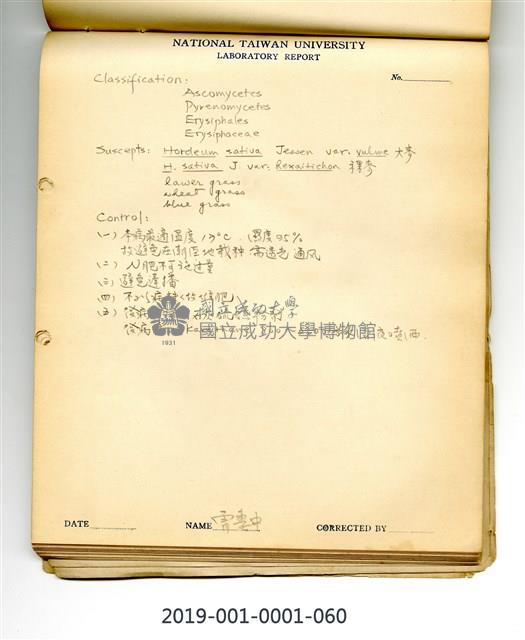 NATIONAL TAIWAN UNIVERSITY
LABORATORY REPORT
No.
Classification:
Ascomycetes
Pyrenomycetes
Erysiphales
Erysiphaceae
Suscepts: Hordeum sativa Jessen var. vulwe 大麥
H. sativa J. var. hexaitichon 裸麥
lawer grass
wheat grass
blue grass
Control:
(一) 本病最適溫度 19°C. 濕度95%
故避免在 地栽种 通風
(二) N肥不可施过量
(三) 避免遲播
(四)
(五)
國立成功大學
國立成功大學博物館
1931
DATE
NAME
CORRECTED BY
2019-001-0001-060